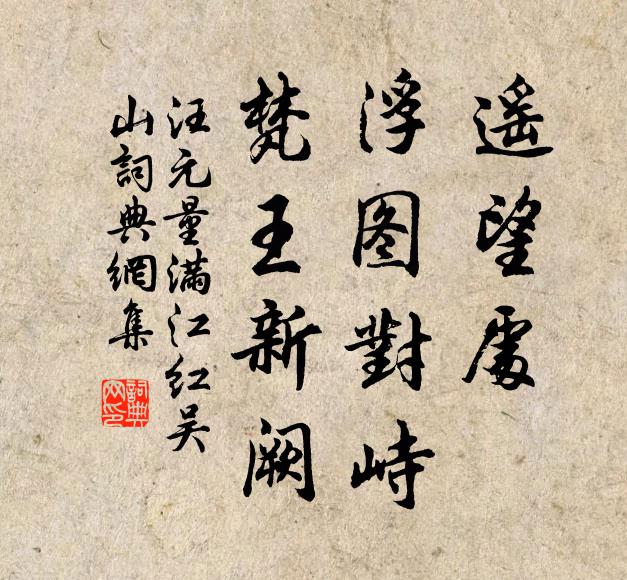 遥望處
浮图對峙
梵王新阙
汪元量满江红吴
山詞典網集
詞典
网印